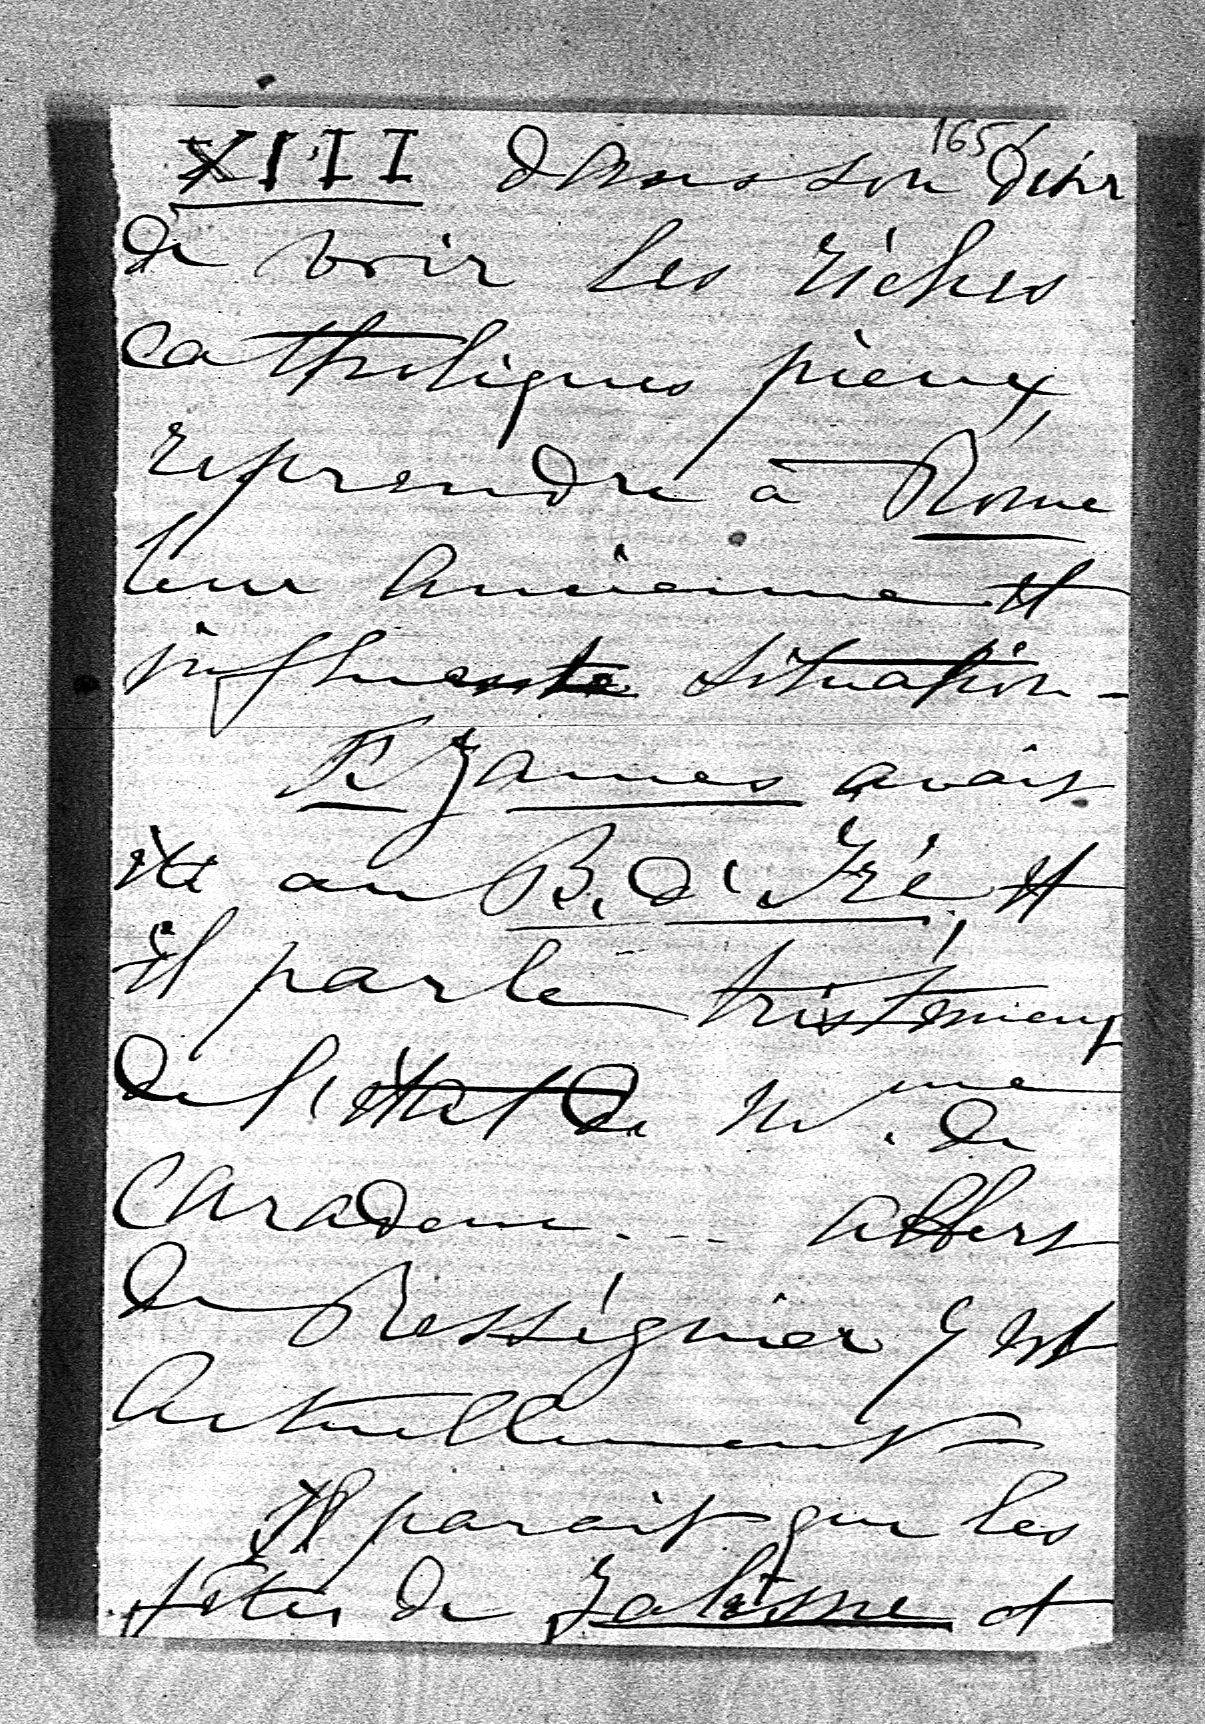 165
XIII dans son désir
de voir les riches
catholiques pieux,
reprendre à Rome
leur ancienne et
influente situation -
Fr James avait
été au B. d'Iré et
il parle tristement
de l'état de Mme de
Caradeuc... Albert
de Rességuier y est
actuellement
Il parait que les
fêtes de et